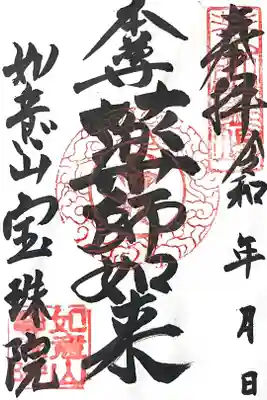 奉拝 令和 年 月 日
本尊 薬師如来
如意山宝珠院